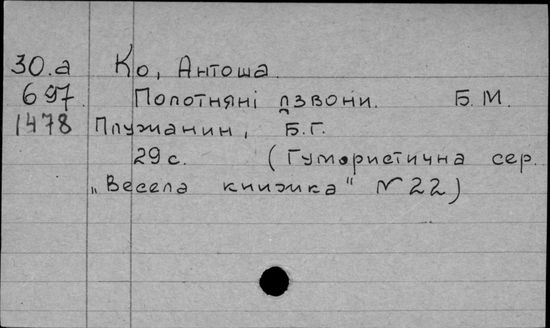 30.а Ко, Антоша
697. Полотняні дзвони. Б.М.
1478 Плужанин, Б.Г.
29 с. (Гумористична сер.
„Весела книжка" № 22)